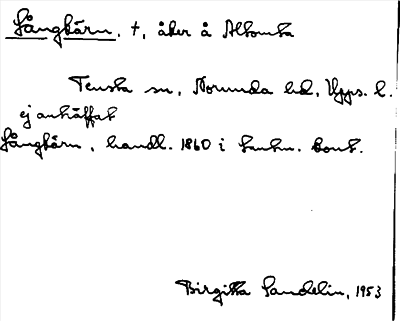 Långkärn, †, åker å Altomta
Tensta sn, Norunda hd, Upps. l.
ej anträffat
Långkärn, handl. 1860 i Lantm. kont.
Birgitta Sandelin, 1953